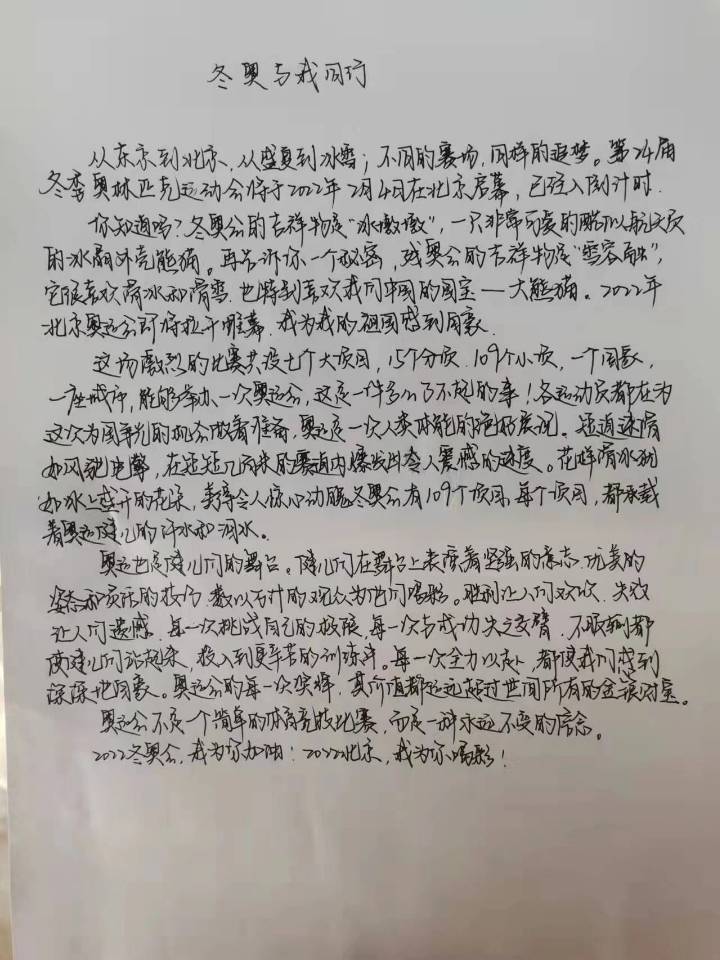 冬奥与我同行
从东京到北京，从盛夏到冰雪；不同的赛场，同样的追梦。第24届
冬季奥林匹克运动会将于2022年2月4日在北京启幕，已经入倒计时．
你知道吗？冬奥会的吉祥物是“冰墩墩”，一只非常可爱的酷似航天员
的冰晶外壳熊猫。再告诉你一个秘密，残奥会的吉祥物是“雪容融”，
它很喜欢滑冰和滑雪．也特别喜欢我们中国的国宝——大熊猫。2022年
北京奥运会即将拉开帷幕．我为我的祖国感到自豪．
这场激烈的比赛共设七个大项目，15个分项．109个小项，一个国家，
一座城市，能够举办一次奥运会，这是一件多么了不起的事！各运动员都在为
这次为国争光的机会做着准备．奥运是一次人类体能的绝好展现。短道速滑
如风驰电掣，在短短几百米的赛道内爆发出令人震撼的速度。花样滑冰犹
如冰上盛开的花朵，美得令人惊心动魄．冬奥会有109个项目，每个项目，都承载
着奥运健儿的汗水和泪水。
奥运也是健儿们的舞台。健儿们在舞台上表演着坚强的意志．优美的
姿态和灵活的技巧．数以万计的观众为他们喝彩。胜利让人们欢欣．失败
让人们遗憾．每一次挑战自己的极限，每一次与成功失之交臂．不服输都
使健儿们站起来，投入到更辛苦的训练中。每一次全力以赴，都使我们感到
深深地自豪。奥运会的每一次奖牌，其价值都远远超过世间所有的金银财宝。
奥运会不是一个简单的体育竞技比赛，而是一种永远不变的信念。
2022冬奥会，我为你加油！2022北京，我为你喝彩！